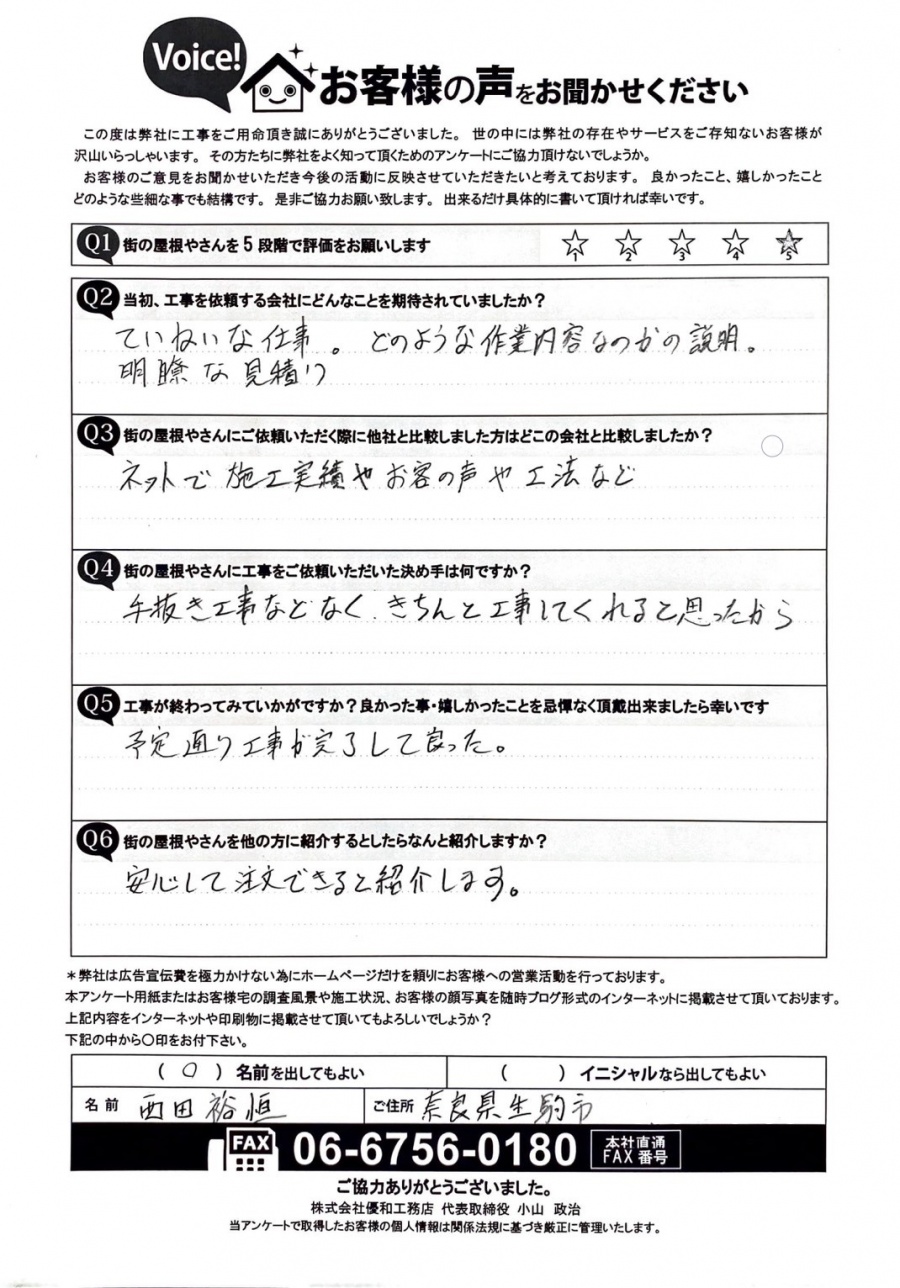 Voice!
お客様の声をお聞かせください
この度は弊社に工事をご用命頂き誠にありがとうございました。 世の中には弊社の存在やサービスをご存知ないお客様が
沢山いらっしゃいます。 その方たちに弊社をよく知って頂くためのアンケートにご協力頂けないでしょうか。
お客様のご意見をお聞かせいただき今後の活動に反映させていただきたいと考えております。 良かったこと、嬉しかったこと
どのような些細な事でも結構です。 是非ご協力お願い致します。 出来るだけ具体的に書いて頂ければ幸いです。
Q1 街の屋根やさんを5段階で評価をお願いします
1 2 3 4 5
Q2 当初、工事を依頼する会社にどんなことを期待されていましたか？
ていねいな仕事。 どのような作業内容なのかの説明。
明瞭な見積り
Q3 街の屋根やさんにご依頼いただく際に他社と比較しました方はどこの会社と比較しましたか？
ネットで施工実績やお客の声や工法など
Q4 街の屋根やさんに工事をご依頼いただいた決め手は何ですか？
手抜き工事などなく、きちんと工事してくれると思ったから
Q5 工事が終わってみていかがですか？良かった事・嬉しかったことを忌憚なく頂戴出来ましたら幸いです
予定通り工事が完了して良った。
Q6 街の屋根やさんを他の方に紹介するとしたらなんと紹介しますか？
安心して注文できると紹介します。
＊弊社は広告宣伝費を極力かけない為にホームページだけを頼りにお客様への営業活動を行っております。
本アンケート用紙またはお客様宅の調査風景や施工状況、お客様の顔写真を随時ブログ形式のインターネットに掲載させて頂いております。
上記内容をインターネットや印刷物に掲載させて頂いてもよろしいでしょうか？
下記の中から〇印をお付下さい。
（ ○ ） 名前を出してもよい （ ） イニシャルなら出してもよい
名前 西田 裕恒 ご住所 奈良県生駒市
FAX 06-6756-0180 本社直通 FAX番号
ご協力ありがとうございました。
株式会社優和工務店 代表取締役 小山 政治
当アンケートで取得したお客様の個人情報は関係法規に基づき厳正に管理いたします。